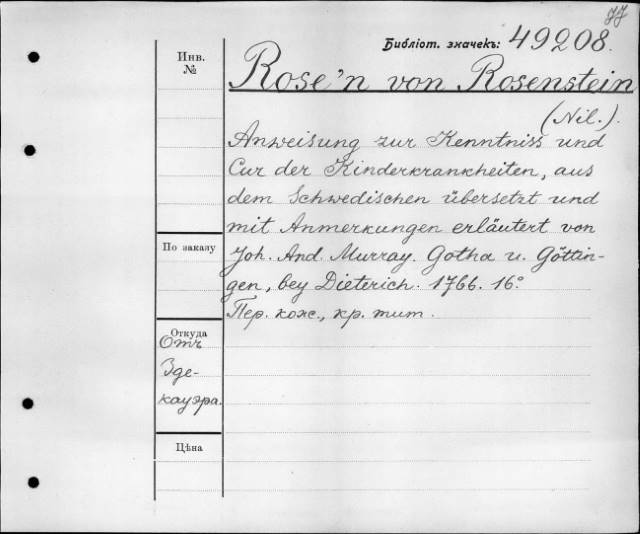 77
Библіот. значекъ: 49208.
Инв.
№
Rose'n von Rosenstein
(Nil.).
Anweisung zur Kenntniss und
Cur der Kinderkrankheiten, aus
dem Schwedischen übersetzt und
mit Anmerkungen erläutert von
По заказу
Joh. And. Murray. Gotha u. Göttin-
gen, bey Dieterich. 1766. 16°
Пер. кож., кр. тит.
Откуда
Отъ
Зде-
кауэра.
Цѣна